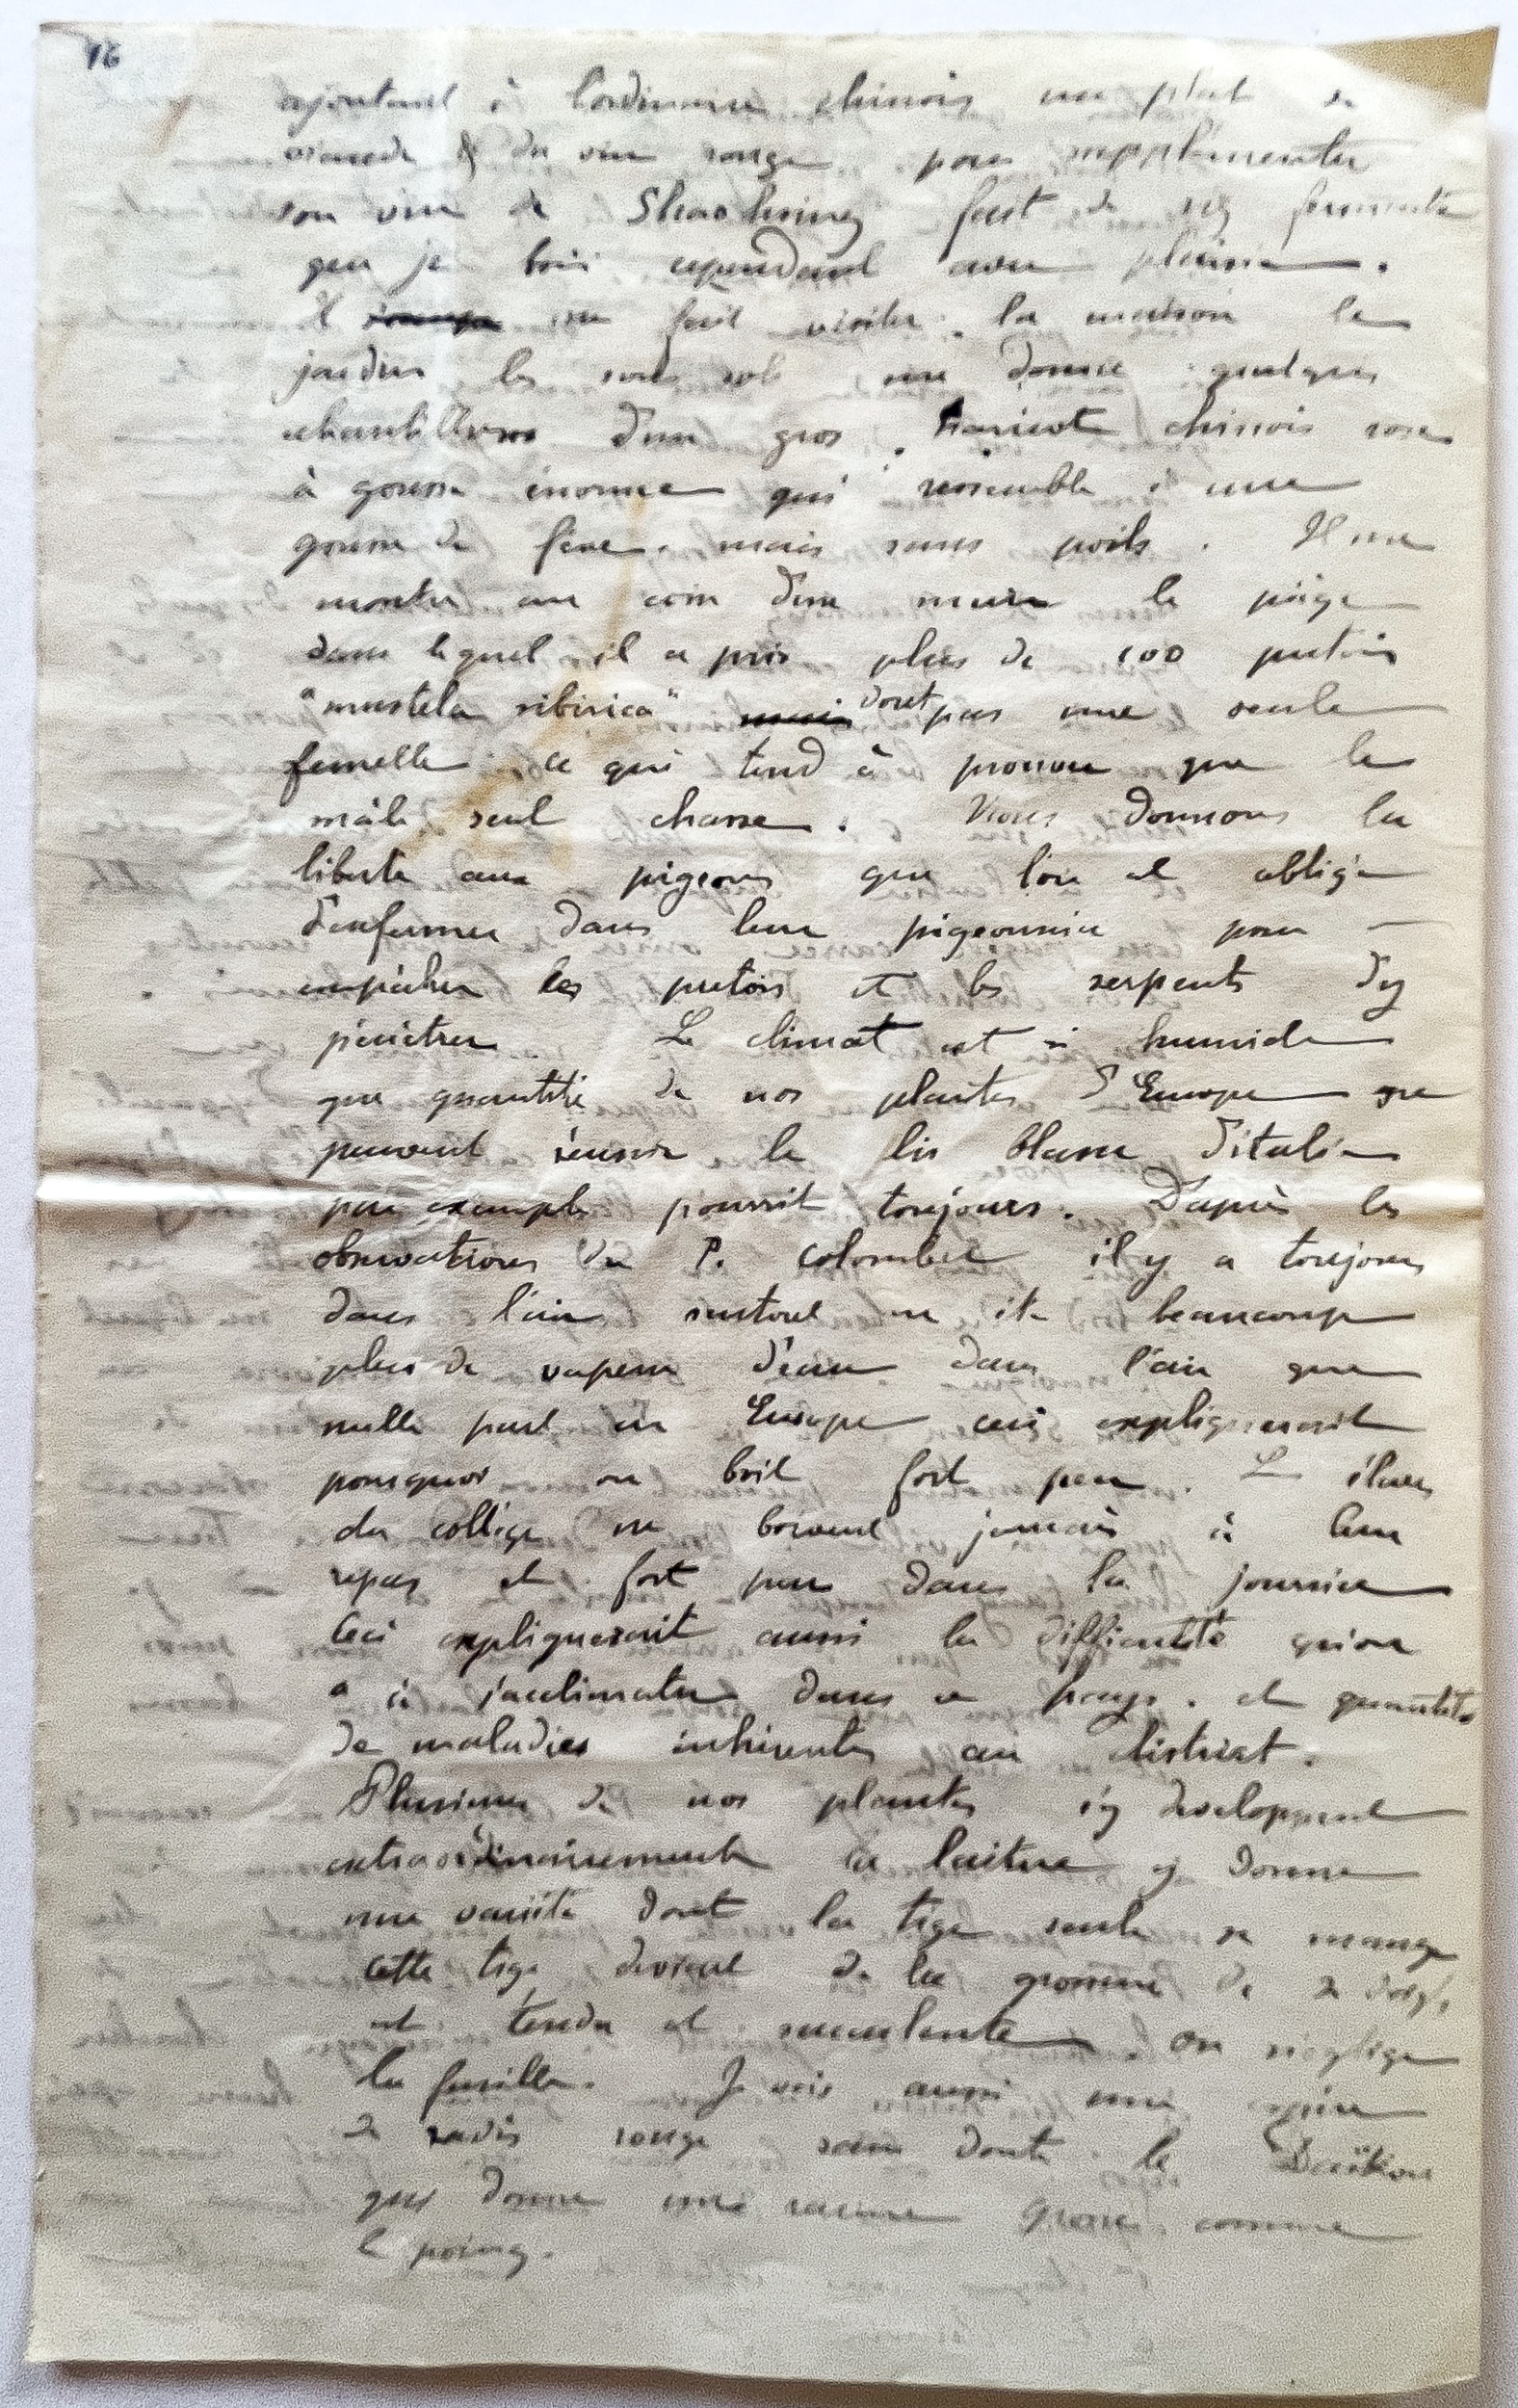 16
ajoutant à l'ordinaire chinois un plat de
viande & du vin rouge pour supplémenter
son vin de Shaohing fait de riz fermenté
que je bois cependant avec plaisir.
Il me fait visiter la maison le
jardin les sous sols me donne quelques
échantillons d'un gros haricot chinois rose
à gousse énorme qui ressemble à une
gousse de fève. mais sans poils. Il me
montre au coin d'un mur le piège
dans lequel il a pris plus de 100 putois
"mustela sibirica" mais dont pas une seule
femelle ce qui tend à prouver que le
mâle seul chasse. Nous donnons la
liberté aux pigeons que l'on est obligé
d'enfermer dans leur pigeonnier pour
empêcher les putois et les serpents d'y
pénétrer. Le climat est si humide
que quantité de nos plantes d'Europe ne
peuvent réussir le lis blanc d'italie
par exemple pourrit toujours. D'après les
observations du P. colombel il y a toujours
dans l'air surtout en été beaucoup
plus de vapeur d'eau dans l'air que
nulle part en Europe ceci expliquerait
pourquoi on boit fort peu. Les élèves
du collège ne boivent jamais à leur
repas et fort peu dans la journée
Ceci expliquerait aussi la difficulté qu'on
a à s'acclimater dans ce pays. et quantité
de maladies inhérentes au district.
Plusieurs de nos plantes s'y developpent
extraordinairement la laitue y donne
une variété dont la tige seule se mange
cette tige devient de la grosseur de 2 doigts
est tendre et succulente. on néglige
la feuille. Je vois aussi une espèce
de radis rouge sans doute le Daïkon
qui donne une racine grosse comme
le poing.